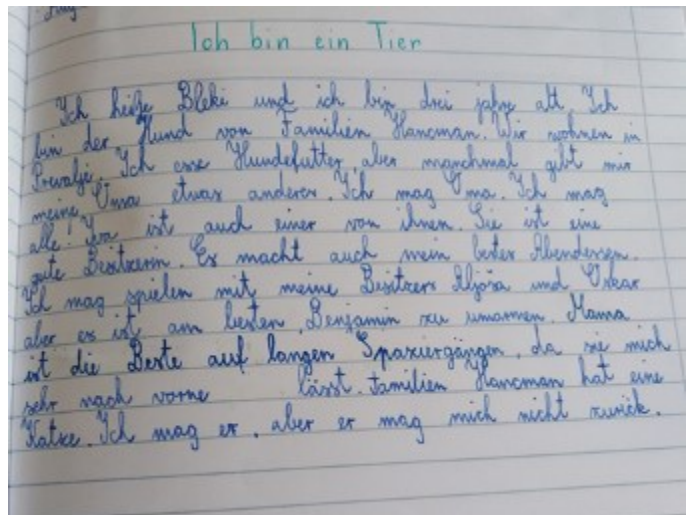 Ich bin ein Tier
Ich heiße Bleki und ich bin drei jahre alt. Ich
bin der Hund von Familien Hancman. Wir wohnen in
Prevalje. Ich esse Hundefutter, aber manchmal gibt mir
meine Oma etwas anderes. Ich mag Oma. Ich mag
alle. Iva ist auch einer von ihnen. Sie ist eine
gute Besitzerin. Es macht auch mein bestes Abendessen.
Ich mag spielen mit meine Besitzers Aljoša und Oskar
aber es ist am besten, Benjamin zu umarmen. Mama
ist die Beste auf langen Spaziergängen, da sie mich
sehr nach vorne lässt. Familien Hancman hat eine
Katze. Ich mag es, aber er mag mich nicht zurück.